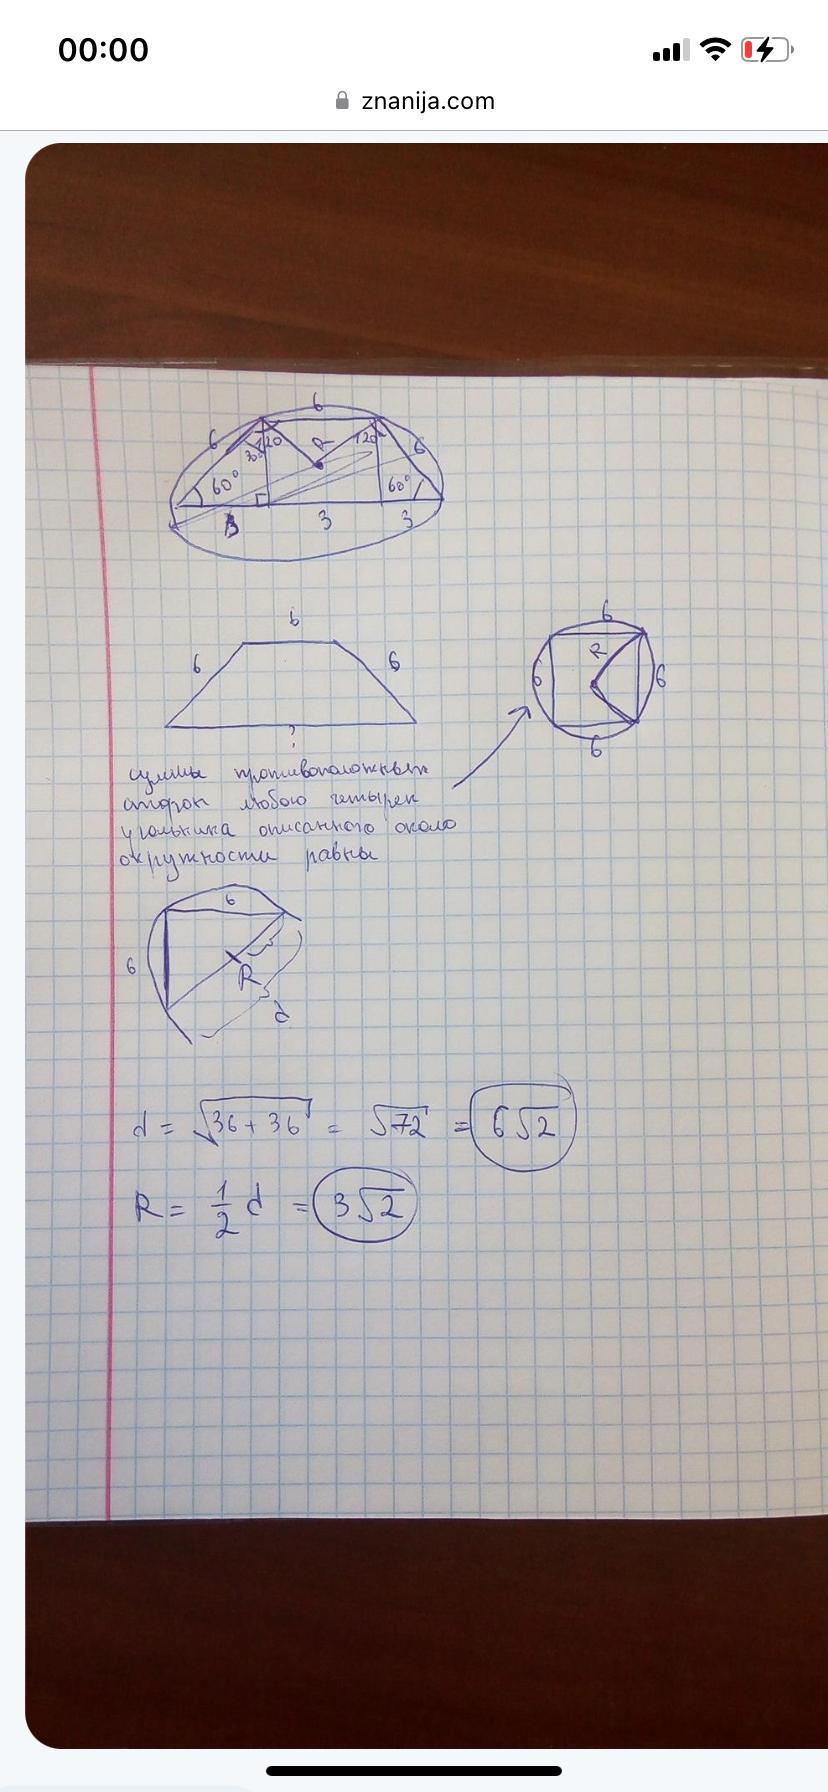 00:00
znanija.com
6
6
6
120
120
30
R
60°
60°
3
3
6
6
6
?
6
R
6
6
6
суммы противоположных
сторон любого четырех
угольника описанного около
окружности равны
6
6
R
d
d = √36 + 36 = √72 = 6√2
R = 1/2 d = 3√2